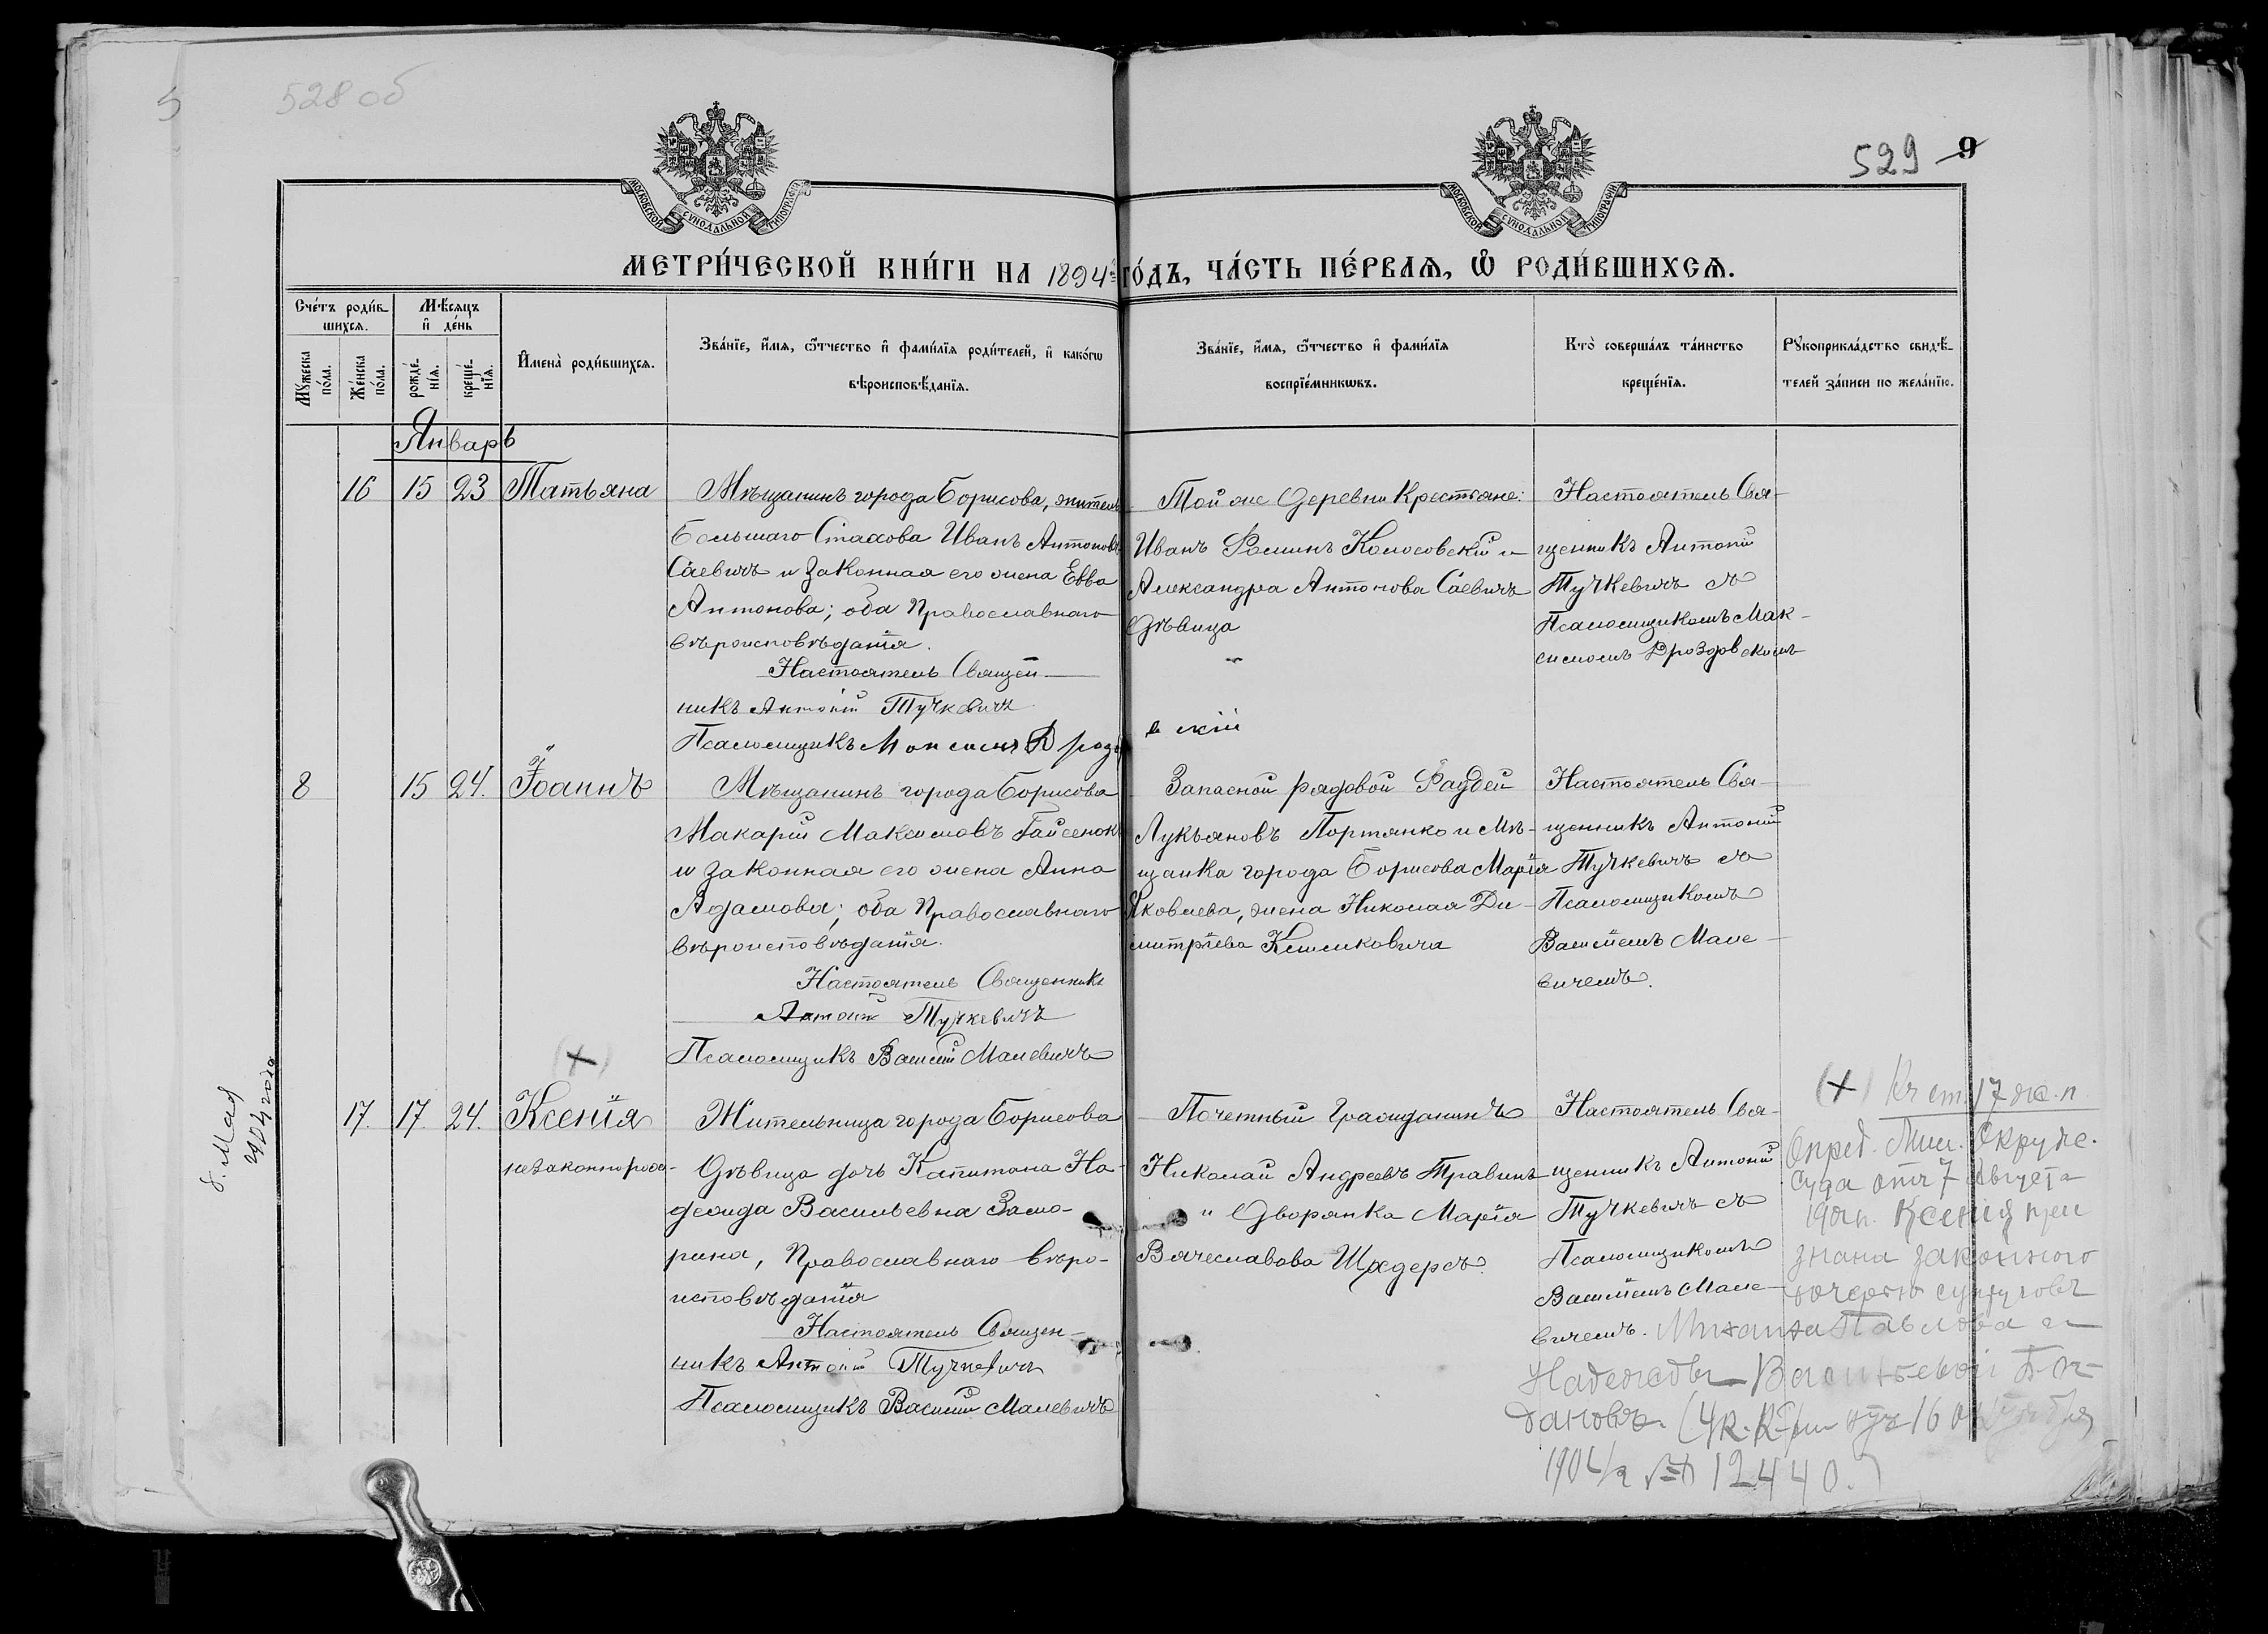 528 об
5
529 9
МОСКОВСКОЙ СУНОДАЛЬНОЙ ТИПОГРАФІИ
МОСКОВСКОЙ СУНОДАЛЬНОЙ ТИПОГРАФІИ
МЕТРИ́ЧЕСКОЙ КНИ́ГИ НА 1894 ГО́ДЪ, ЧА́СТЬ ПЕ́РВАѦ, Ѽ РОДИ́ВШИХСѦ.
Сче́тъ роди́вшихсѧ.
Мꙋ́жеска по́ла.
Же́нска по́ла.
Мѣ́сѧцъ и҆ де́нь
рожде́нїѧ.
креще́нїѧ.
И҆мена̀ роди́вшихсѧ.
Зва́нїе, и҆́мѧ, ѻ҆́тчество и҆ фами́лїѧ роди́телей, и҆ како́гѡ
вѣроисповѣ́данїѧ.
Зва́нїе, и҆́мѧ, ѻ҆́тчество и҆ фами́лїѧ
воспрїе́мникѡвъ.
Кто̀ соверша́лъ та́инство
креще́нїѧ.
Рꙋкоприкла́дство свидѣ́-
телей за́писи по жела́нїю.
Январь
16 15 23 Татьяна
Мѣщанинъ города Борисова, житель
Большаго Стахова Иванъ Антоновъ
Саевичъ и законная его жена Евва
Антонова; оба Православнаго
вѣроисповѣданія.
Настоятель Священ-
никъ Антоній Тучкевичъ
Псаломщикъ Максимъ Дроздовскій
Той же деревни Крестьяне:
Иванъ Фоминъ Колосовскій и
Александра Антонова Саевичъ
дѣвица
Настоятель Свя-
щенникъ Антоній
Тучкевичъ съ
Псаломщикомъ Мак-
симомъ Дроздовскимъ
8 15 24. Іоаннъ
Мѣщанинъ города Борисова
Макарій Максимовъ Гайсенокъ
и законная его жена Анна
Адамова; оба Православнаго
вѣроисповѣданія.
Настоятель Священникъ
Антоній Тучкевичъ
Псаломщикъ Василій Малевичъ
Запасной рядовой Фаддей
Лукьяновъ Портянко и Мѣ-
щанка города Борисова Марія
Яковлева, жена Николая Ди-
митріева Климковича
Настоятель Свя-
щенникъ Антоній
Тучкевичъ съ
Псаломщикомъ
Василіемъ Мале-
вичемъ.
8. Мая
1904 года
(+)
17. 17. 24. Ксенія
незаконнорож-
Жительница города Борисова
Дѣвица дочь Капитана На-
дежда Васильевна Замо-
рина, Православнаго вѣро-
исповѣданія
Настоятель Священ-
никъ Антоній Тучкевичъ
Псаломщикъ Василій Малевичъ
Почетный Гражданинъ
Николай Андреевъ Травинъ
и Дворянка Марія
Вячеславова Шрадерсъ
Настоятель Свя-
щенникъ Антоній
Тучкевичъ съ
Псаломщикомъ
Василіемъ Мале-
вичемъ.
(+) Къ ст. 17 ж. п.
Опред. Мин. Окруж.
Суда отъ 7 Августа
Ксенія при
знана законною
дочерью супруговъ
Михаила Павлова и
Надежды Васильевой Бог-
дановъ. (Ук. К-ріи отъ 16 октября
№ 12440.)